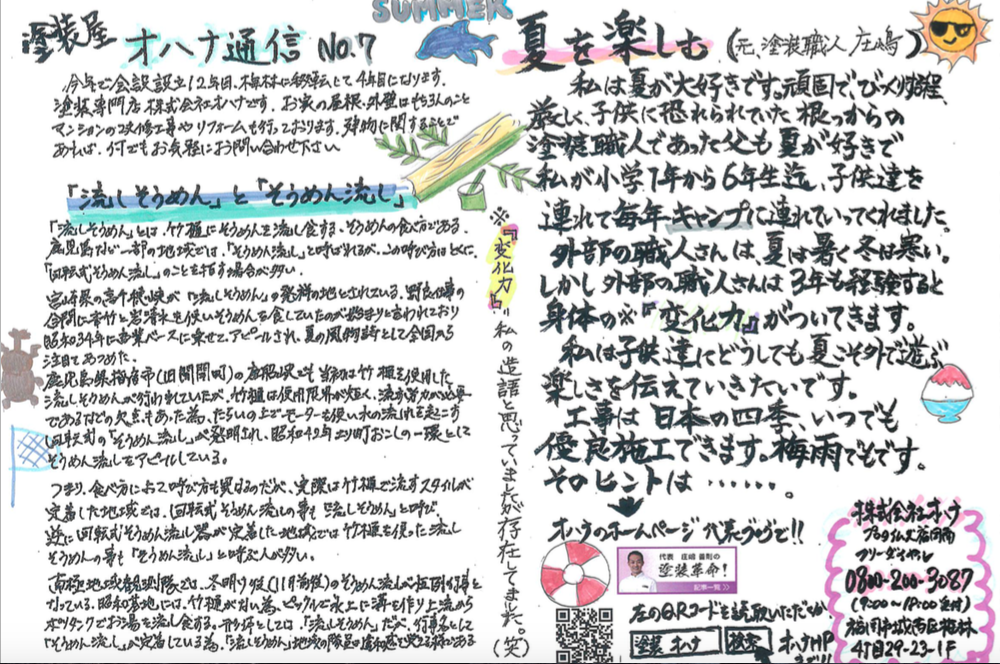 SUMMER
塗装屋 オハナ通信 No.7
今年で会設設立12年目、梅林に移転して4年目になります。
塗装専門店 株式会社オハナです。お家の屋根・外壁はもちろんのこと
マンションの改修工事やリフォームも行っております。建物に関することで
あれば、何でもお気軽にお問い合わせ下さい
「流しそうめん」と「そうめん流し」
「流しそうめん」とは、竹樋にそうめんを流し食する、そうめんの食べ方である。
鹿児島など一部の地域では、「そうめん流し」と呼ばれるが、この呼び方はとくに、
「回転式そうめん流し」のことを指す場合が多い。
宮崎県の高千穂峡が「流しそうめん」の発祥の地とされている。野良仕事の
合間に青竹と岩清水を使いそうめんを食していたのが始まりと言われており
昭和34年に商業ベースに乗せて、アピールされ、夏の風物詩として全国から
注目をあつめた。
鹿児島県指宿市(旧開聞町)の唐船峡でも当初は竹樋を使用した
流しそうめんが行われていたが、竹樋は使用限界が短く、流す労力が必要
であるなどの欠点もあった為、たらいの上でモーターを使い水の流れを起こす
回転式の「そうめん流し」が発明され、昭和42年より町おこしの一環として
そうめん流しをアピールしている。
つまり、食べ方によって呼び方も異なるのだが、実際は竹樋で流すスタイルが
定着した地域では、回転式そうめん流しの事も「流しそうめん」と呼び、
逆に回転式そうめん流し器が定着した地域では竹樋を使った流し
そうめんの事も「そうめん流し」と呼ぶ人が多い。
南極地域観測隊では、冬明け後(11月前後)のそうめん流しが恒例行事と
なっている。昭和基地には、竹樋がない為、ピックルで氷上に溝を作り上流から
ポリタンクでお湯を流し食する。
「そうめん流し」が定着している為、「流しそうめん」地域の隊員は違和感を覚える様である
※『変化力』=私の造語と思っていましたが存在してました。(笑)
夏を楽しむ (元、塗装職人 庄嶋)
私は夏が大好きです。頑固で、びっくりする程、
厳しく、子供に恐れられていた根っからの
塗装職人であった父も夏が好きで
私が小学1年から6年生迄、子供達を
連れて毎年キャンプに連れていってくれました。
外部の職人さんは、夏は暑く冬は寒い。
しかし外部の職人さんは3年も経験すると
身体の※『変化力』がついてきます。
私は子供達にどうしても夏こそ外で遊ぶ
楽しさを伝えていきたいです。
工事は日本の四季、いつでも
優良施工できます。梅雨でもです。
そのヒントは・・・・・・。
オハナのホームページ 代表ブログで!!
代表 庄嶋 喜則の
塗装革命!
記事一覧 >>
左のQRコードを読取いただくか
塗装 オハナ 検索 オハナHP
株式会社オハナ
プロタイムズ福岡南
フリーダイヤル
0800-200-3087
(9:00〜18:00受付)
福岡市城南区梅林
4丁目29-23-1F